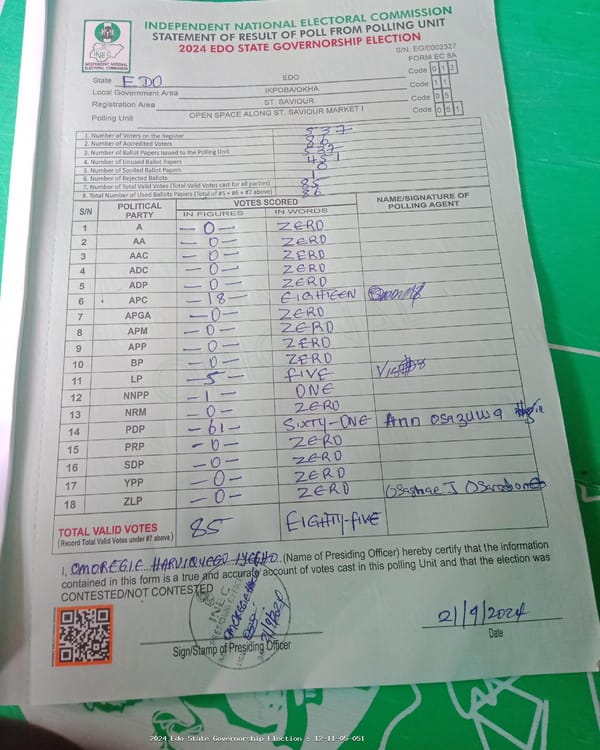 INDEPENDENT NATIONAL ELECTORAL COMMISSION
STATEMENT OF RESULT OF POLL FROM POLLING UNIT
2024 EDO STATE GOVERNORSHIP ELECTION
INEC
INDEPENDENT NATIONAL ELECTORAL COMMISSION
S/N: EG/0002327
FORM EC 8A
State EDO EDO Code 0 1 2
Local Government Area IKPOBA/OKHA Code 1 1
Registration Area ST. SAVIOUR Code 0 5
Polling Unit OPEN SPACE ALONG ST. SAVIOUR MARKET I Code 0 5 1
1. Number of Voters on the Register 537
2. Number of Accredited Voters 86
3. Number of Ballot Papers Issued to the Polling Unit 537
4. Number of Unused Ballot Papers 451
5. Number of Spoiled Ballot Papers 0
6. Number of Rejected Ballots 1
7. Number of Total Valid Votes (Total Valid Votes cast for all parties) 85
8. Total Number of Used Ballots Papers (Total of #5 + #6 + #7 above) 86
S/N POLITICAL PARTY VOTES SCORED NAME/SIGNATURE OF POLLING AGENT
IN FIGURES IN WORDS
1 A -0- ZERO
2 AA -0- ZERO
3 AAC -0- ZERO
4 ADC -0- ZERO
5 ADP -0- ZERO
6 APC -18- EIGHTEEN
7 APGA -0- ZERO
8 APM -0- ZERO
9 APP -0- ZERO
10 BP -0- ZERO
11 LP -5- FIVE
12 NNPP -1- ONE
13 NRM -0- ZERO
14 PDP -61- SIXTY-ONE Ann Osazuwa
15 PRP -0- ZERO
16 SDP -0- ZERO
17 YPP -0- ZERO
18 ZLP -0- ZERO J
TOTAL VALID VOTES 85 EIGHTY-FIVE
(Record Total Valid Votes under #7 above)
I, OMOREGIE (Name of Presiding Officer) hereby certify that the information
contained in this form is a true and accurate account of votes cast in this polling Unit and that the election was
CONTESTED/NOT CONTESTED
INEC
21/9/2024
21/9/2024
Sign/Stamp of Presiding Officer
Date
2024 Edo State Governorship Election : 12-11-05-051